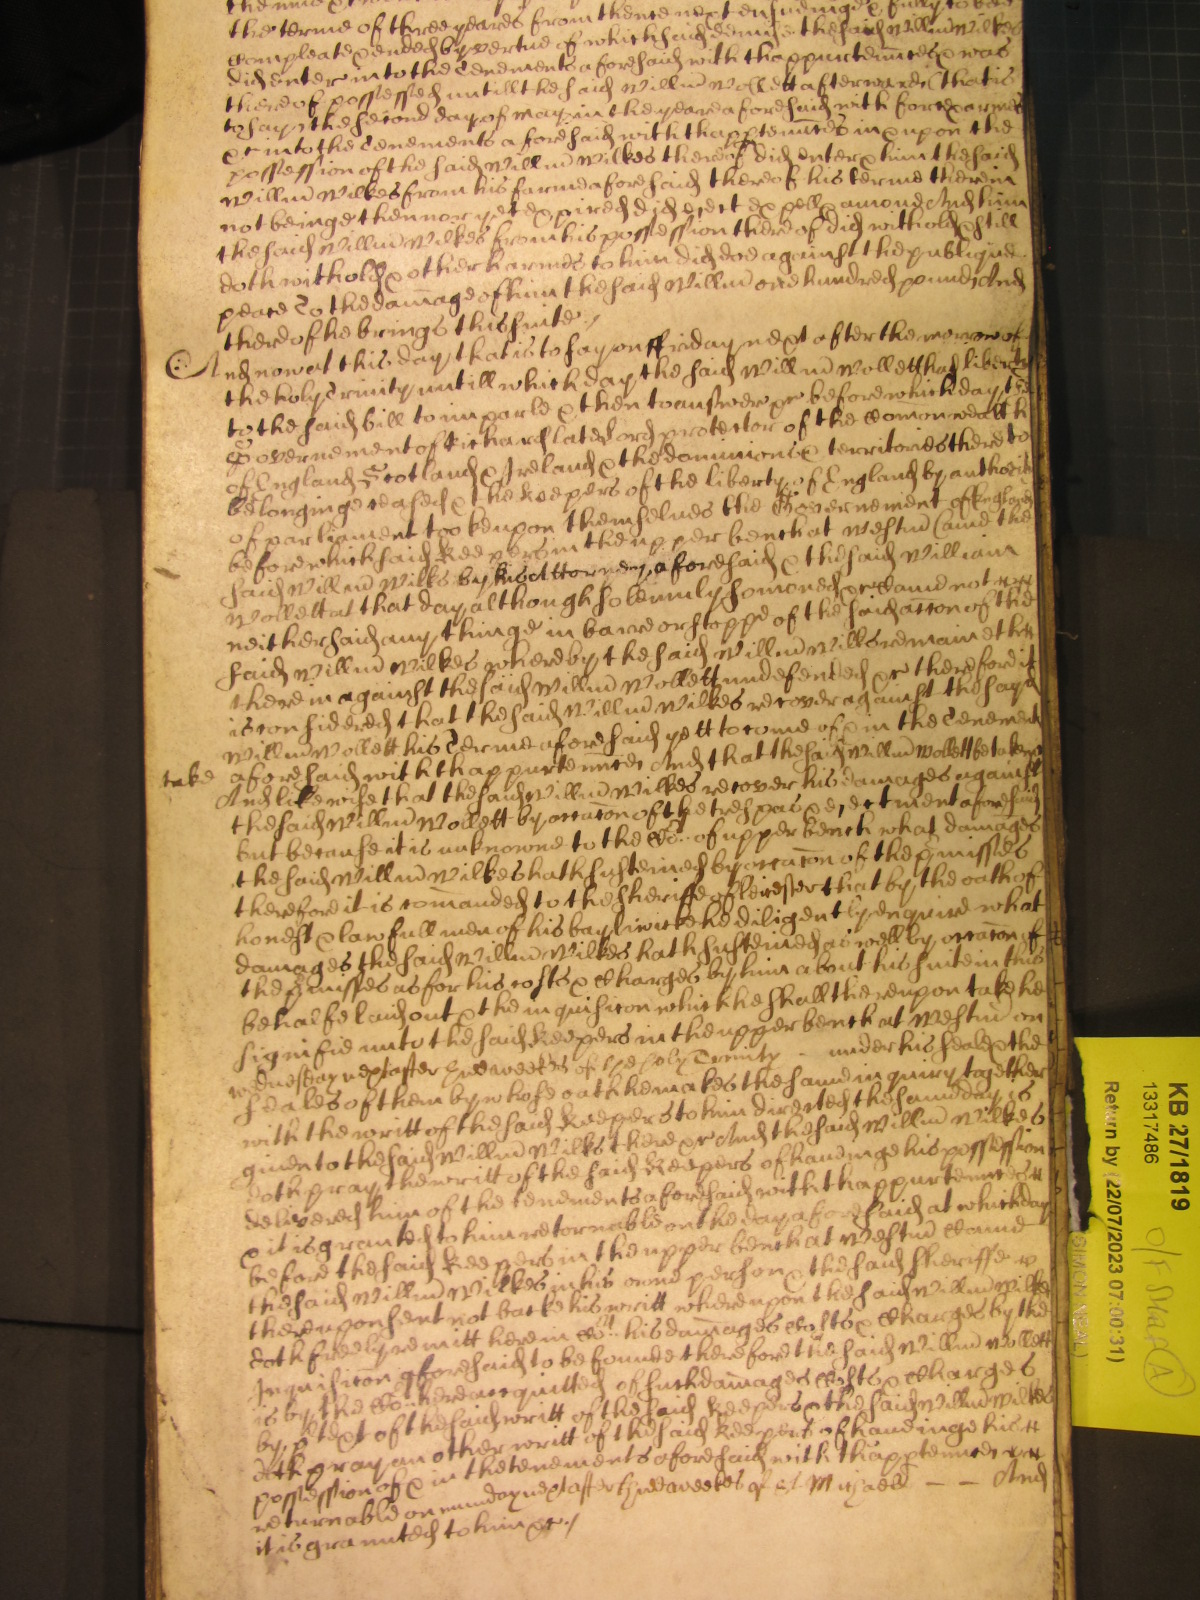 the terme of three yeares from thence next ensuinge & fully to bee
compleate & ended by vertue of which said demise the said Willm Wilkes
did enter into the Tenements aforesaid with thappurtenncs & was
thereof possessed untill the said Willm Wollett afterwards (that is
to say) the second day of may in the yeare aforesaid with force & armes
&c into the Tenements aforesaid with thapptenncs in & upon the
possession of the said Willm Wilkes thereof did enter & him the said
Willm Wilkes from his farme aforesaid thereof his terme therein
not beinge then nor yet expired did eiect expell & amove And him
the said Willm Wilkes from his possession thereof did withold & still
doth withold & other harmes to him did doe against the publique
peace To the damage of him the said Willm one hundred pounds And
thereof he brings this suite /
And now at this day that is to say on ffriday next after the morrow of
the holy Trinity untill which day the said Willm Wollett had liberty
to the said bill to imparle & then to answere &c before which day the
Governement of Richard late Lord protector of the Comonwealth
of England Scotland & Ireland & the dominions & territories thereto
belonginge ceased & the keepers of the liberty of England by authority
of parliament tooke upon themselves the Governement of England
before which said keepers in the upper bench at Westm Came the
said Willm Wilks by his Attorney aforesaid & the said William
Wollett at that day although solemnly somoned &c Came not nor
neither said any thinge in barre or stoppe of the said accon of the
said Willm Wilkes whereby the said Willm Wilks remaineth
therein against the said Willm Wollett undefended &c therefore it
is considered that the said Willm Wilkes recover against the sayd
Willm Wollett his Terme aforesaid yett to come of & in the Tenements
take aforesaid with thappurtenncs And that the said Willm Wollett be taken
And likewise that the said Willm Wilkes recover his damages against
the said Willm Wollett by occacon of the trespas & eiectment aforesaid
but because it is unknowne to the Co:t of upper bench what damages
the said Willm Wilkes hath susteined by occacon of the pmisses
therefore it is comanded to the sheriffe of leicester that by the oath of
honest & lawfull men of his bayliwicke he diligently enquire what
damages the said Willm Wilkes hath susteined as well by occacon of
the pmisses as for his costs & Charges by him about his suite in this
behalfe laid out & the inquisicon which he shall thereupon take he
signifie unto the said keepers in the upper bench at Westm on
wednesday next after three weekes of the holy Trinity - under his seale & the
seales of them by whose oath he makes the same inquiry together
with the writt of the said keepers to him directed the same day is
given to the said Willm Wilks there &c And the said Willm Wilkes
doth pray the writt of the said keepers of haueinge his possession
delivered him of the tenements aforesaid with thappurtenncs
& it is granted to him retornable on the day aforesaid at which day
before the said keepers in the upper bench at Westm Came
the said Willm Wilkes in his owne person & the said sheriffe
thereupon sent not backe his writt whereupon the said Willm Wilkes
doth freely remitt here in Co:t his damages Costs & Charges by the
Inquisicon aforesaid to be founde therefore the said Willm Wollett
is by the Co:t here acquitted of such damages Costs & Charges
by ptext of the said writt of the said keepers & the said Willm Wilkes
doth pray an other writt of the said keepers of haueinge his
possession of & in the tenements aforesaid with thapptenncs
returnable on munday next after three weekes of St Michaell — — And
it is graunted to him &c /
KB 27/1819
13317486
Return by (22/07/2023 07:00:31)
SIMON NEAL)